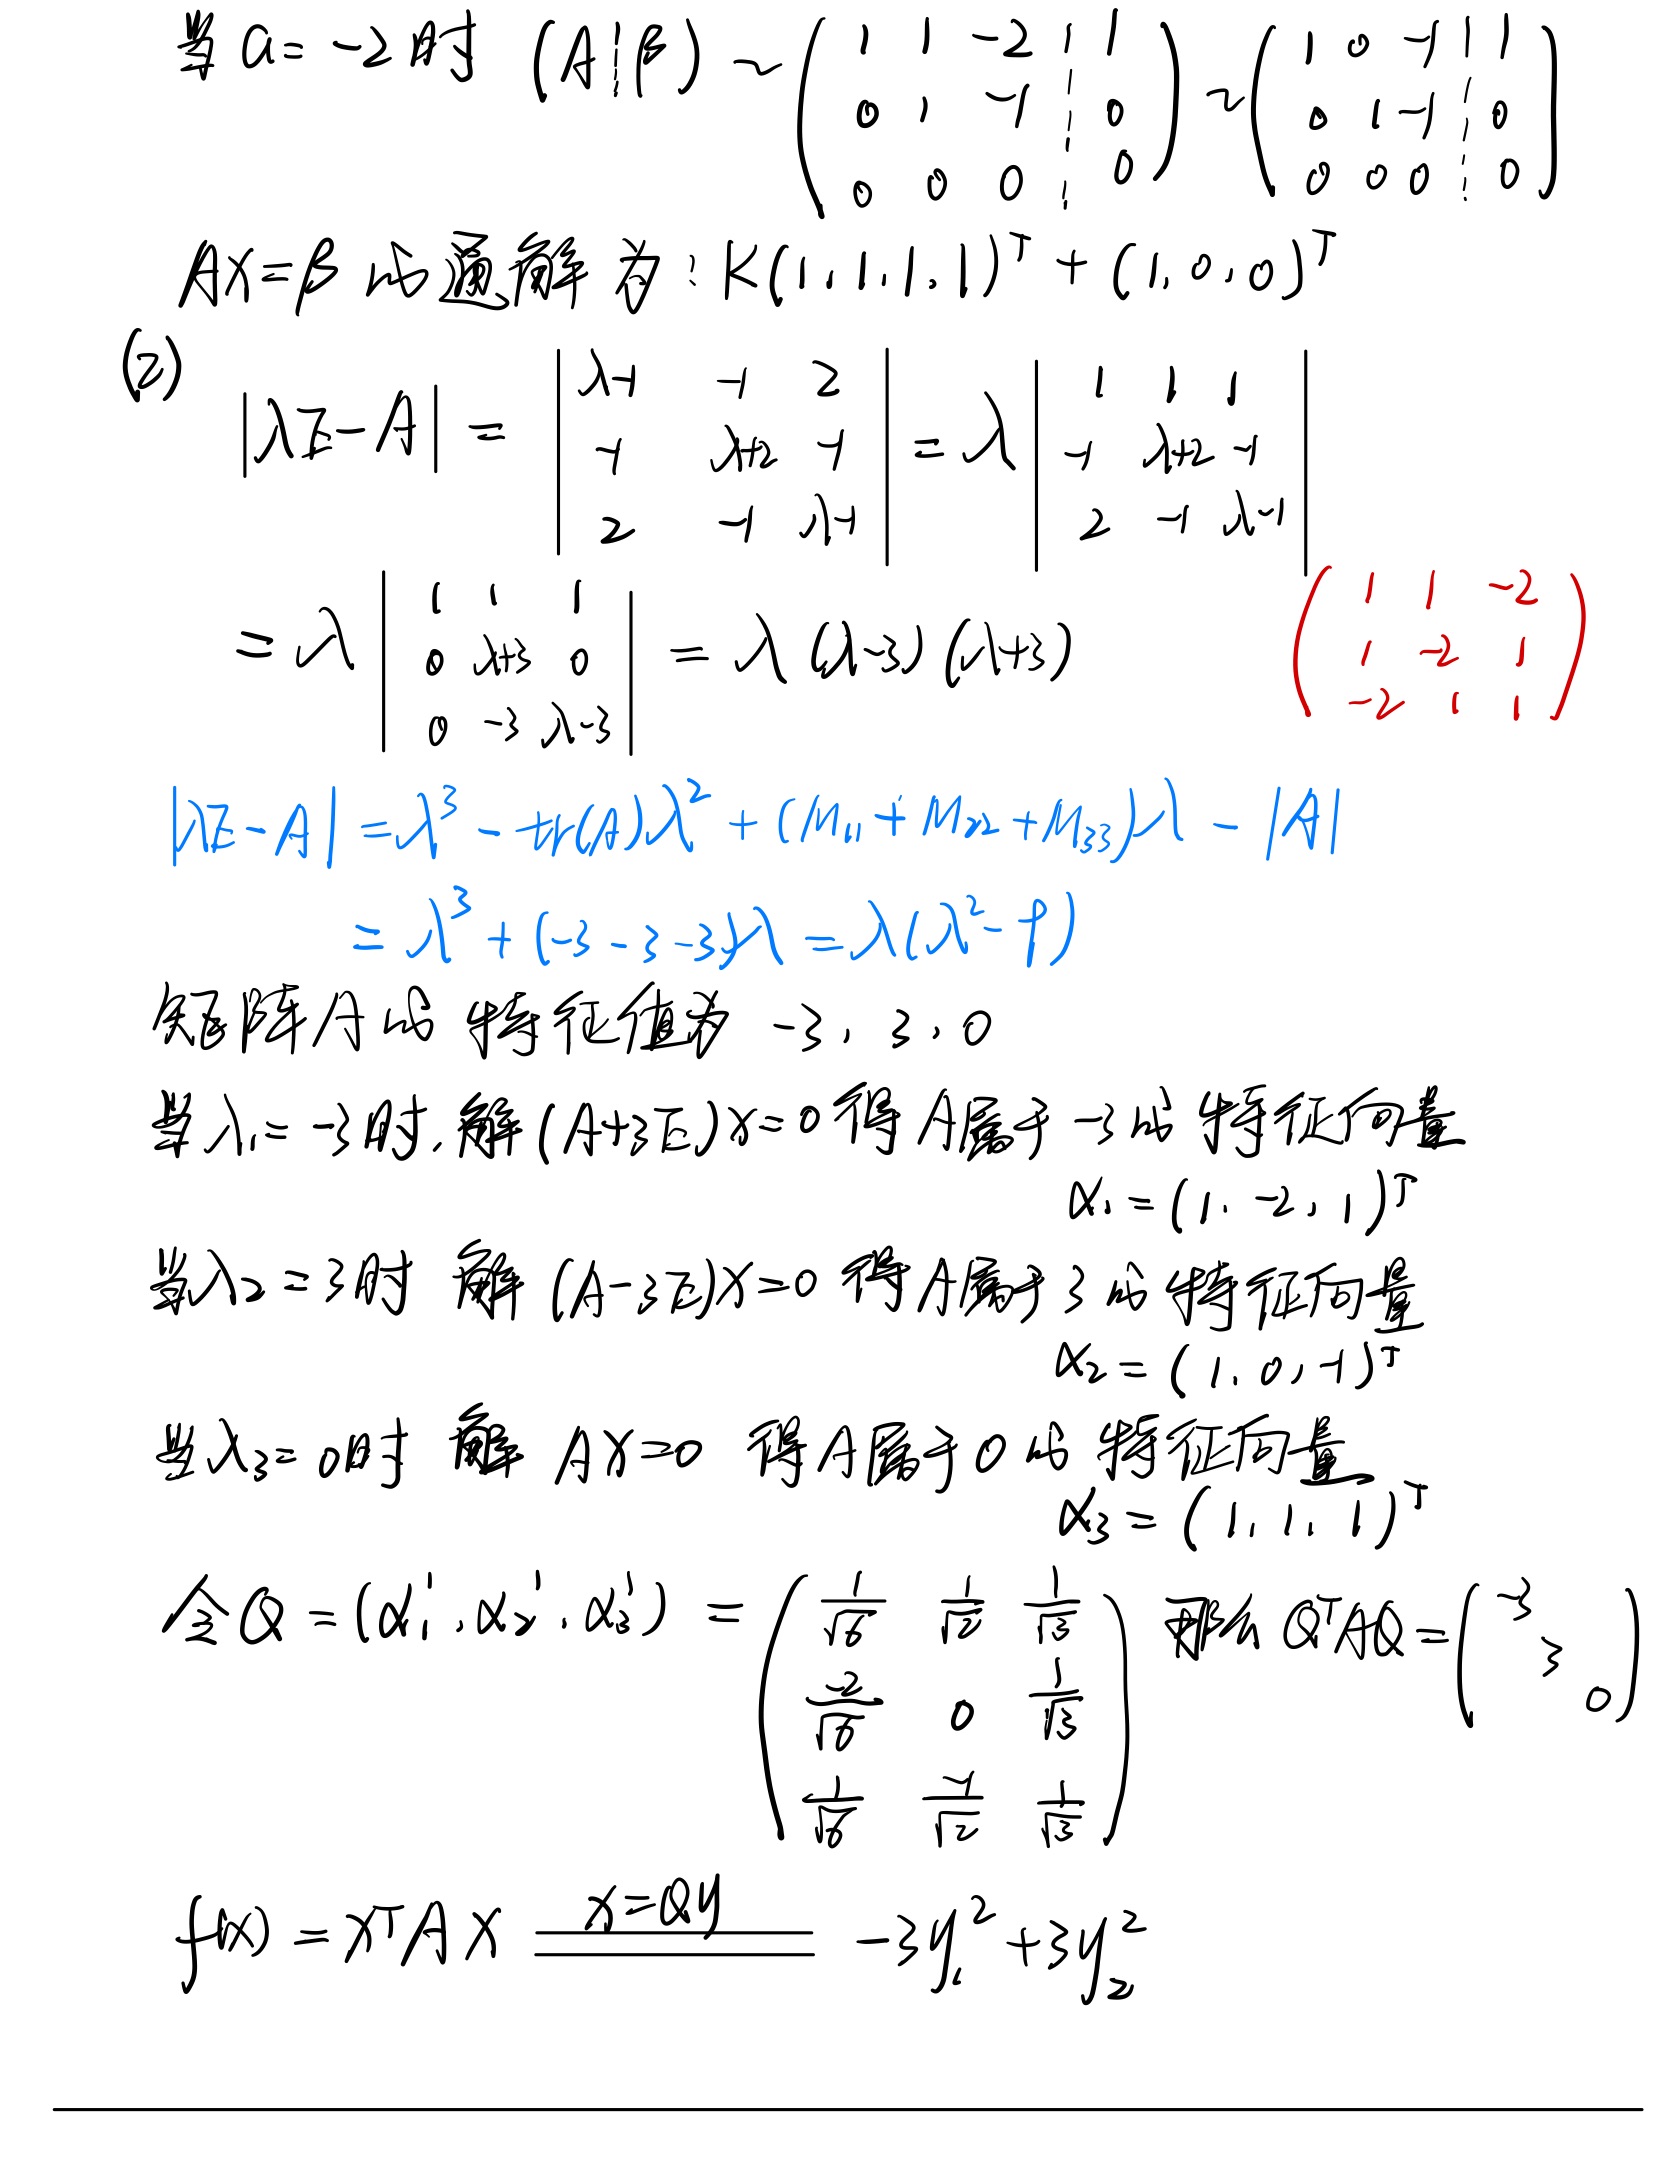 当 a = -2 时 (A┆β) ~ ( 1 1 -2 ┆ 1 ; 0 1 -1 ┆ 0 ; 0 0 0 ┆ 0 ) ~ ( 1 0 -1 ┆ 1 ; 0 1 -1 ┆ 0 ; 0 0 0 ┆ 0 )
AX = β 的通解为: K(1,1,1,1)ᵀ + (1,0,0)ᵀ
(2)
|λE-A| = | λ-1 -1 2 ; -1 λ+2 -1 ; 2 -1 λ-1 | = λ | 1 1 1 ; -1 λ+2 -1 ; 2 -1 λ-1 |
= λ | 1 1 1 ; 0 λ+3 0 ; 0 -3 λ-3 | = λ(λ-3)(λ+3)
( 1 1 -2 ; 1 -2 1 ; -2 1 1 )
|λE-A| = λ³ - tr(A)λ² + (M₁₁ + M₂₂ + M₃₃)λ - |A|
= λ³ + (-3-3-3)λ = λ(λ²-9)
矩阵A的特征值为 -3, 3, 0
当λ₁=-3时,解(A+3E)x=0 得A属于-3的特征向量
α₁ = (1,-2,1)ᵀ
当λ₂=3时 解(A-3E)x=0 得A属于3的特征向量
α₂ = (1,0,-1)ᵀ
当λ₃=0时 解 Ax=0 得A属于0的特征向量
α₃ = (1,1,1)ᵀ
令Q = (α₁', α₂', α₃') = ( 1/√6 1/√2 1/√3 ; -2/√6 0 1/√3 ; 1/√6 -1/√2 1/√3 ) 那么 QᵀAQ = ( -3 ; 3 ; 0 )
f(x) = xᵀAx x=Qy -3y₁² + 3y₂²